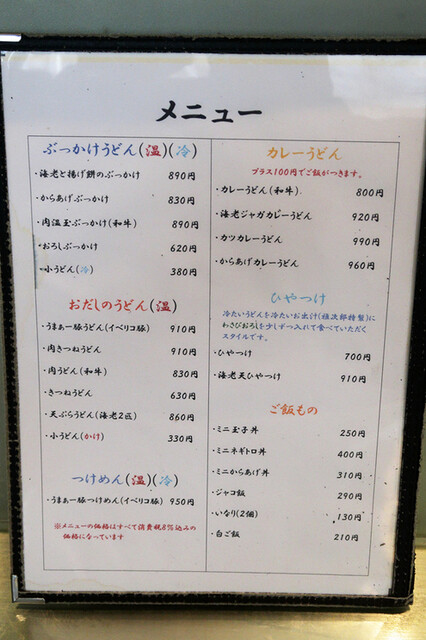 メニュー
ぶっかけうどん(温)(冷)
・海老と揚げ餅のぶっかけ 890円
・からあげぶっかけ 830円
・肉温玉ぶっかけ(和牛) 890円
・おろしぶっかけ 620円
・小うどん(冷) 380円
おだしのうどん(温)
・うまぁー豚うどん(イベリコ豚) 910円
・肉きつねうどん 910円
・肉うどん(和牛) 830円
・きつねうどん 630円
・天ぷらうどん(海老2匹) 860円
・小うどん(かけ) 330円
つけめん(温)(冷)
・うまぁー豚つけめん(イベリコ豚) 950円
※メニューの価格はすべて消費税8%込みの
価格になっています
カレーうどん
プラス100円でご飯がつきます。
・カレーうどん(和牛) 800円
・海老ジャガカレーうどん 920円
・カツカレーうどん 990円
・からあげカレーうどん 960円
ひやつけ
冷たいうどんを冷たいお出汁(雅次郎特製)に
わさびおろしを少しずつ入れて食べていただく
スタイルです。
・ひやつけ 700円
・海老天ひやつけ 910円
ご飯もの
・ミニ玉子丼 250円
・ミニネギトロ丼 400円
・ミニからあげ丼 310円
・ジャコ飯 290円
・いなり(2個) 130円
・白ご飯 210円